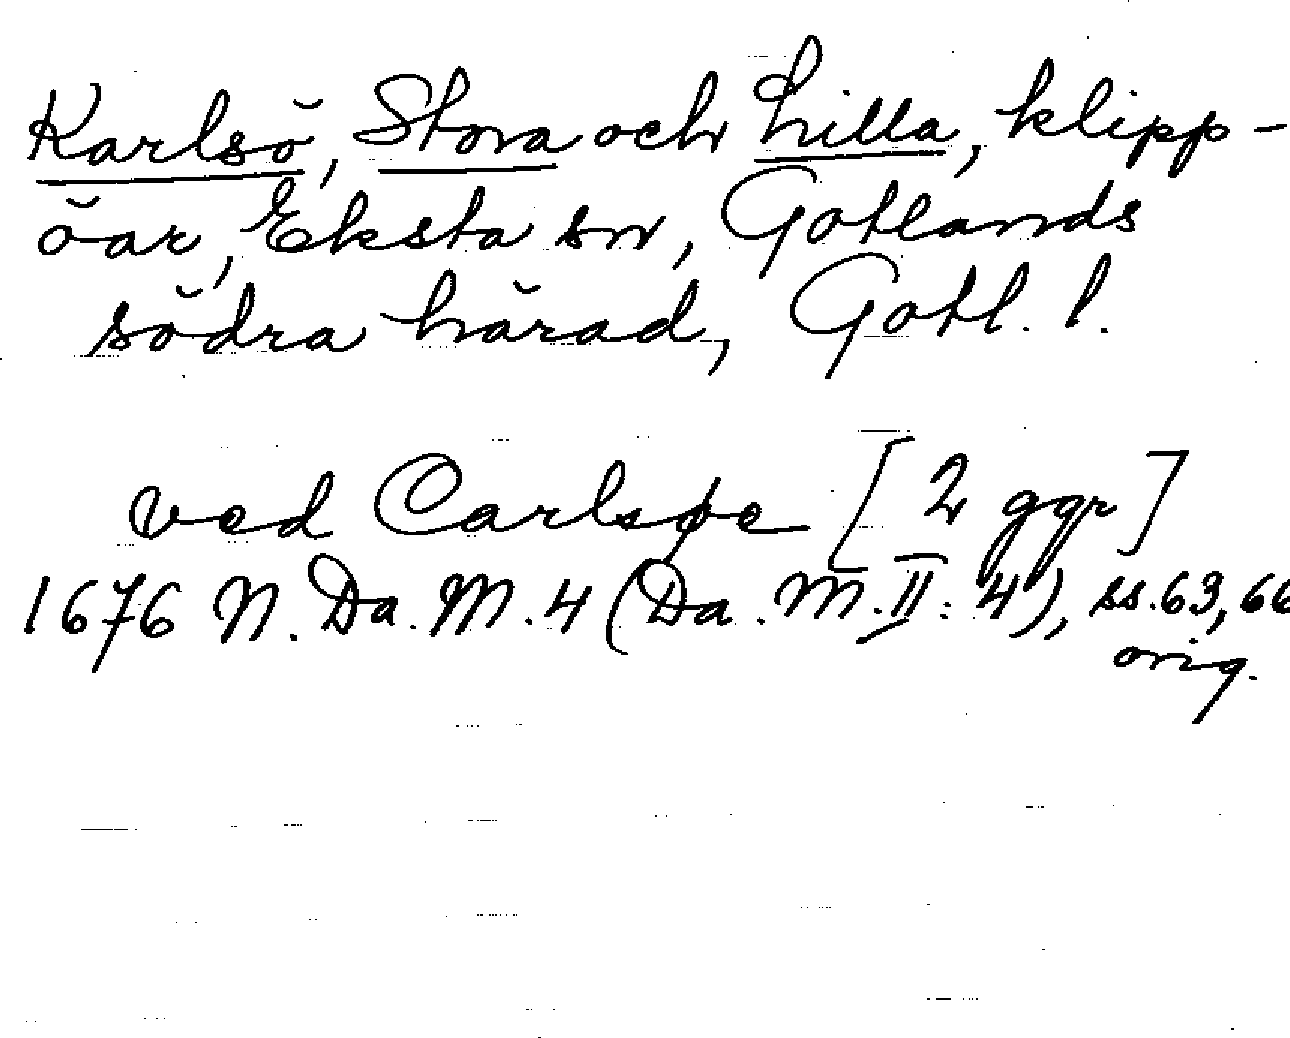 Karlsö, Stora och Lilla, klipp-
öar, Eksta sn, Gotlands
södra härad, Gotl. l.
ved Carlsøe [2 ggr]
1676 N. Da. M. 4 (Da. M. II: 4), ss. 63, 66
orig.